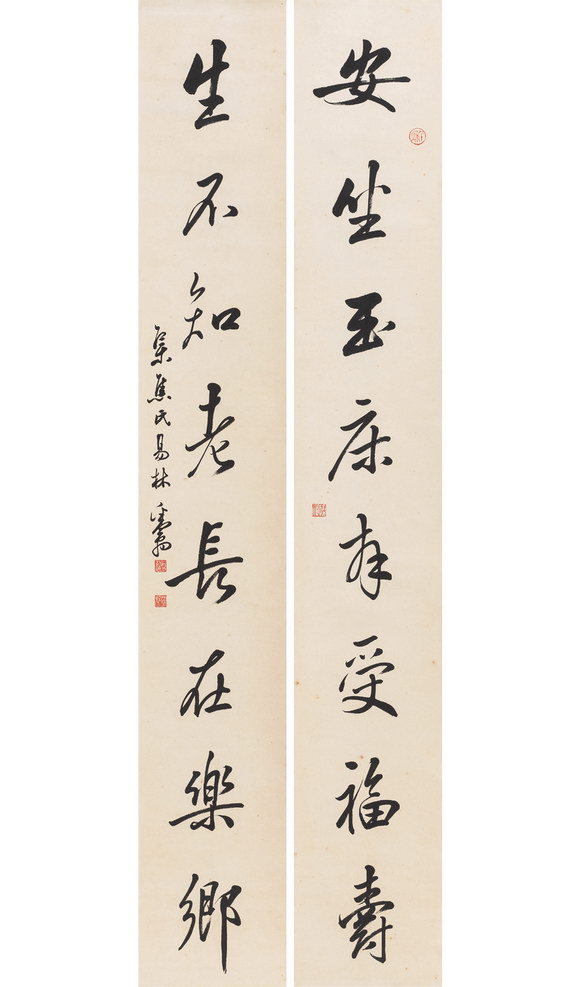 安坐玉床受福壽
生不知老長在樂鄉
集焦氏易林